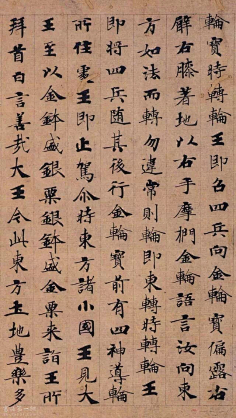 輪寶時轉輪王即召四兵向金輪寶偏露右
臂右膝著地以右手摩捫金輪語言汝向東
方如法而轉勿違常則輪即東轉時轉輪王
即將四兵隨其後行金輪寶前有四神導輪
所住處王即止駕尒時東方諸小國王見大
王至以金鉢盛銀粟銀鉢盛金粟來詣王所
拜首白言善哉大王今此東方土地豊樂多